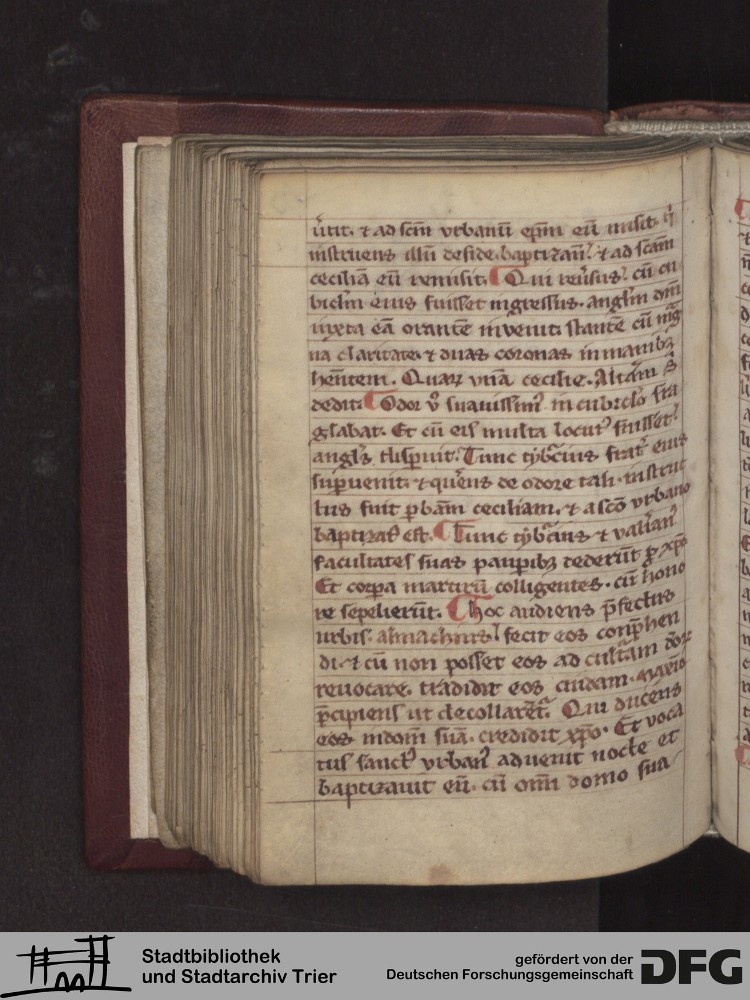 u̔tit. ⁊ ad sc̄m vrbanū ep̄m eū misit. q̇
instruens illū de fide baptizau᷑. ⁊ ad sc̄am
ceciliā eū remisit. Qui reu̓sus᷑. cū cu
biclm̄ eius fuisset ingressus. angl̄m dn̄i
iuxta eā orantē inuenit. stantē cū mag
na claritate. ⁊ duas coronas in manibꝫ
hn̄tem. Quaꝝ vnā cecilie. Altam̄ S̄
dedit. Odor v̊ suauissimꝰ in cubiclo̅ fra
glabat. Et cū eis multa locutꝰ fuisset᷑.
angl̄s disꝑuit. Tunc tyb̓cius frat̄ eius
suꝑuenit. ⁊ qu̓ens de odore tali. instruc
tus fuit ꝑ bām ceciliam. ⁊ a sc̄o vrbano
baptizatꝰ est. Tunc tyb̓cius ⁊ valian̓ꝰ
facultates suas pauꝑibꝫ dederūt ꝓ xp̄o
Et corꝑa martirū colligentes. cū hono
re sepelierūt. Hoc audiens p̄fectus
urbis. almachius᷑ fecit eos conp̄hen
di. ⁊ cū non posset eos ad cultūm deoꝝ
reuocare. tradidit eos cuidam. maxīo
p̄cipiens ut decollarēt᷑. Qui ducens
eos in domū suā. credidit xp̄o. Et voca
tus sanctꝰ vrbanꝰ aduenit nocte et
baptizauit eū. cū om̄i domo sua
Stadtbibliothek
und Stadtarchiv Trier
gefördert von der
Deutschen Forschungsgemeinschaft
DFG